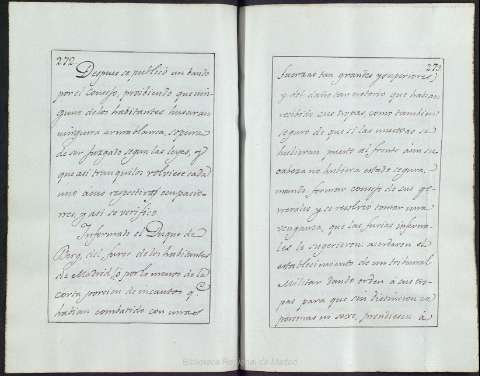 272
Despues se publicó un bando
por el Consejo, proibiendo que nin
guno de los habitantes usaran
ninguna arma blanca, so pena
de ser juzgado segun las leyes, y
que asi tranquilos volviese cada
uno a sus respectivas ocupacio
nes, y asi se verificó
Informado el Duque de
Berg, del furor de los habitantes
de Madrid (o por lo menos de la
corta porcion de incautos q.e
habian combatido con unas
273
fuerzas tan grandes y superiores)
y del daño tan notorio que habian
recibido sus tropas como tambien
seguro de que si las nuestras se
hubieran puesto al frente aun su
cabeza no hubiera estado segura,
mando formar consejo de sus ge
nerales, y se resolvio tomar una
venganza, que las furias inferna
les la sugerieron acordaron el
establecimiento de un tribunal
Militar dando orden a sus tro
pas para que sin distincion de
personas ni sexo, prendiesen à
Biblioteca Regional de Madrid